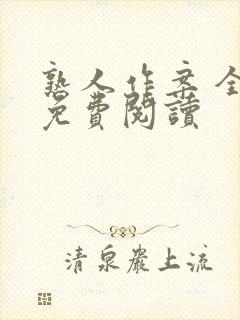 熟人作案全
免費閱讀
清泉巖上流